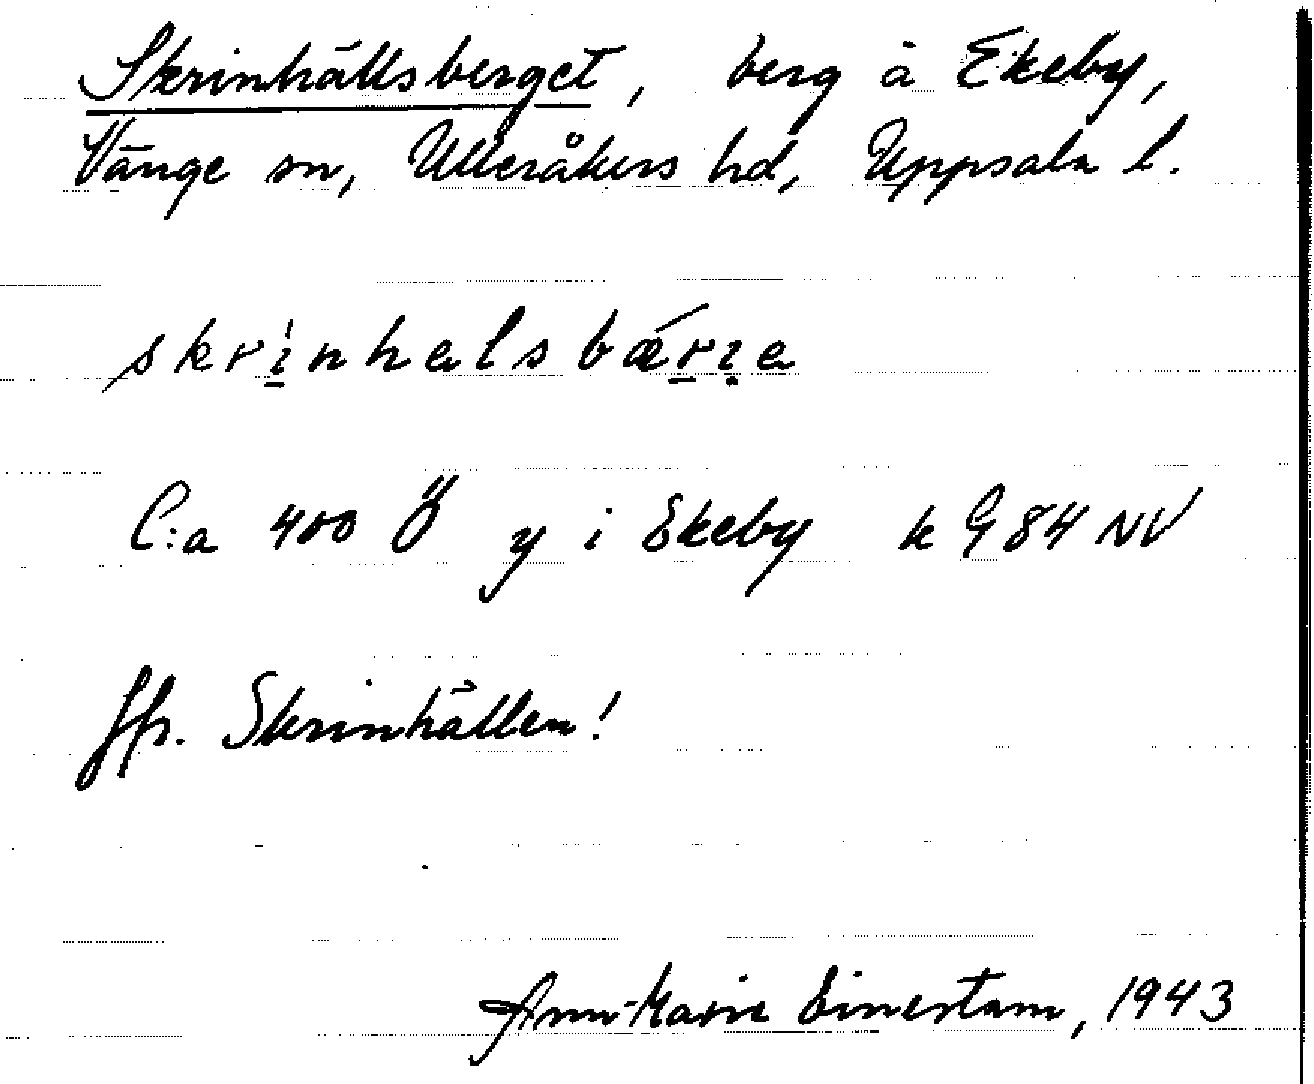 Skrinhällsberget, berg å Ekeby,
Vänge sn, Ulleråkers hd, Uppsala l.
skrinhalsbæria
C:a 400 Ö y i Ekeby k G 84 NV
Jfr. Skrinhällen!
Ann-Marie Einerstam, 1943